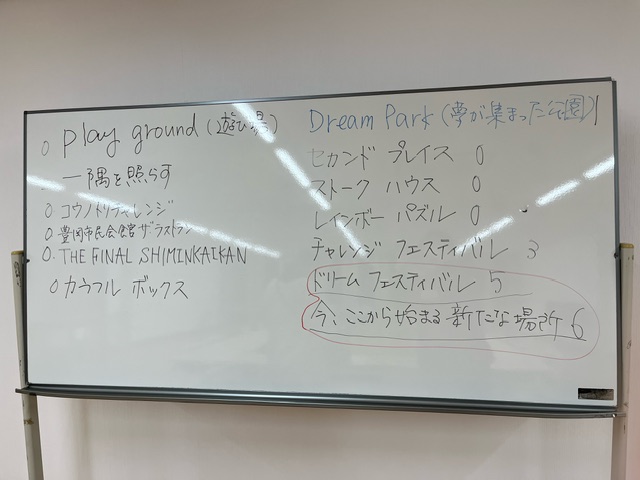 0 play ground (遊び場)
一隅を照らす
0 コウノトリチャレンジ
0 豊岡市民会館ザ・ラストラン
0. THE FINAL SHIMINKAIKAN
0 カラフル ボックス
Dream Park (夢が集まった公園)
セカンド プレイス 0
ストーク ハウス 0
レインボー パズル 0
チャレンジ フェスティバル 3
ドリーム フェスティバル 5
今、ここから始まる 新たな場所 6